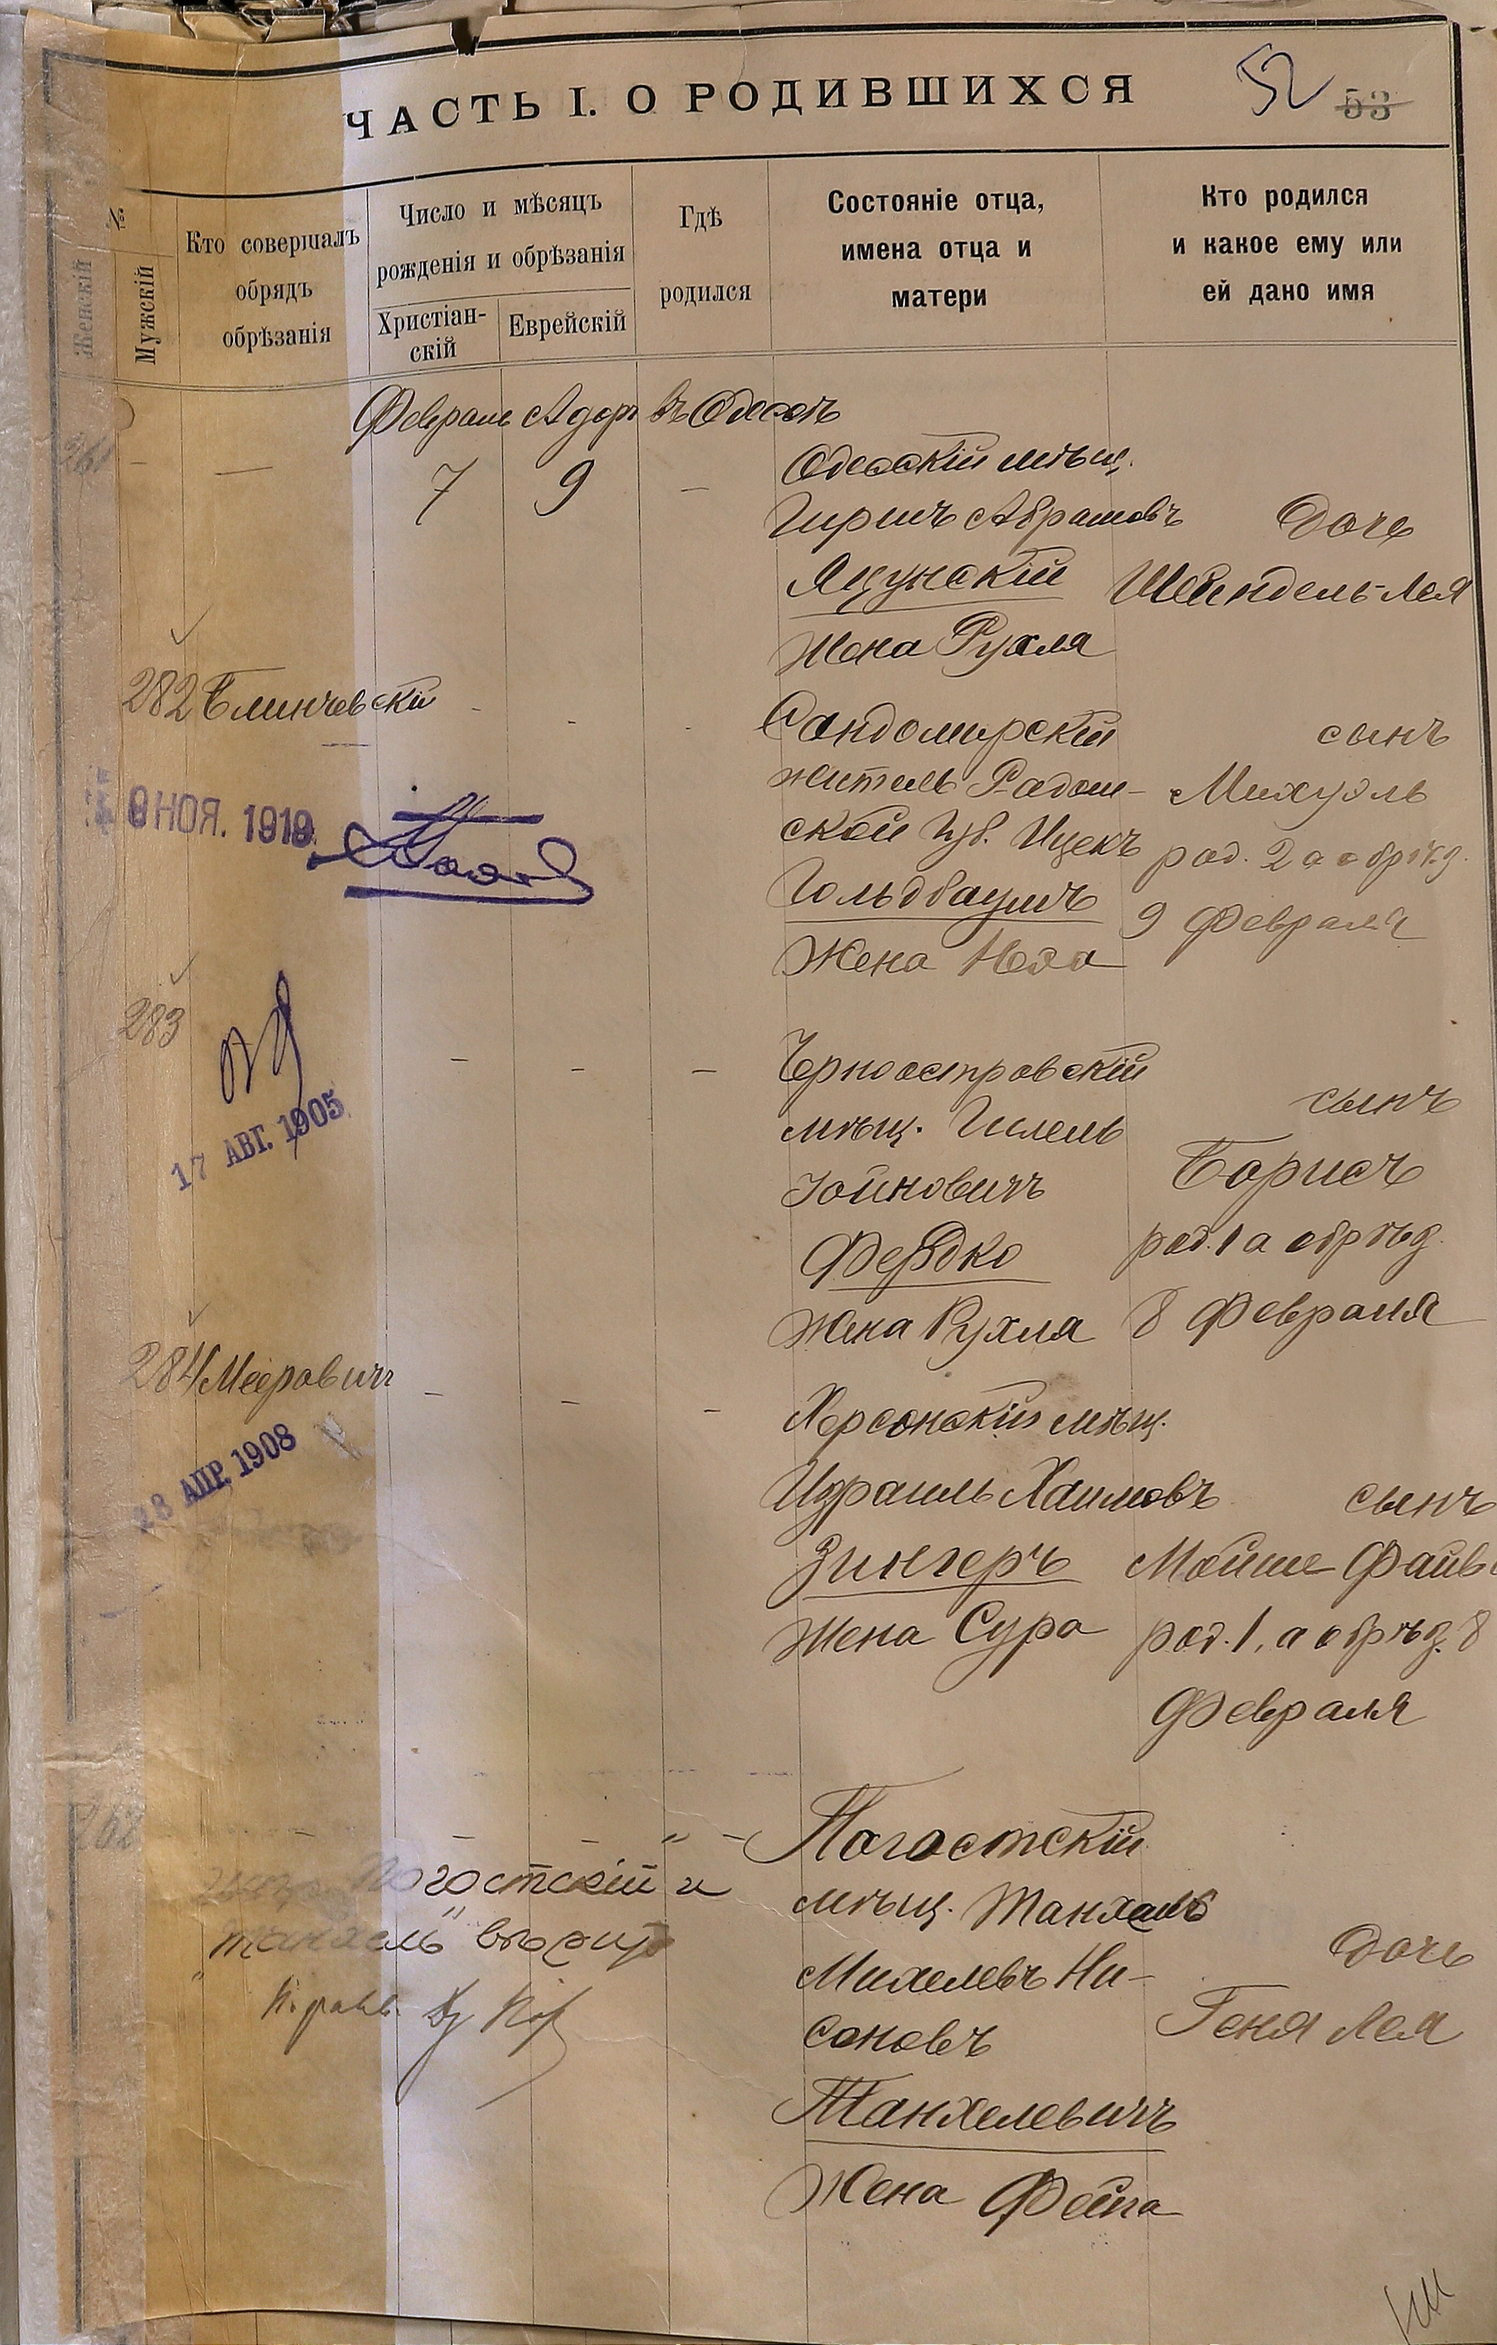 ЧАСТЬ I. О РОДИВШИХСЯ
52
53
№
Женскій
Мужскій
Кто совершалъ
обрядъ
обрѣзанія
Число и мѣсяцъ
рожденія и обрѣзанія
Христіан-
скій
Еврейскій
Гдѣ
родился
Состояніе отца,
имена отца и
матери
Кто родился
и какое ему или
ей дано имя
Февраль Адоръ въ Одессѣ
261 — — 7 9 — Одесскій мѣщ.
Гиршъ Абрамовъ
Яцунскій
Жена Рухля
Дочь
Шейндель-Лея
282 Блинчевскій - - - Сандомирскій
житель Радом-
ской губ. Ицекъ
Гольдбаумъ
Жена Нэха
сынъ
Михуэль
род. 2 а обрѣз.
9 Февраля
9 НОЯ. 1919
283 — — — Черноостровскій
мѣщ. Гилель
Іойновичъ
Федко
Жена Рухля
сынъ
Борисъ
род. 1 а обрѣз.
8 Февраля
17 АВГ. 1905
284 Мееровичъ — — — Херсонскій мѣщ.
Израиль Хаимовъ
Зингеръ
Жена Сура
сынъ
Мойше Файв
род. 1, а обрѣз. 8
Февраля
28 АПР. 1908
262 — — — " — Погостскій
мѣщ. Танхель
Михелевъ Ни-
соновъ
Танхелевичъ
Жена Фейга
Дочь
Геня Лея
Погостскій и
"Танхель"